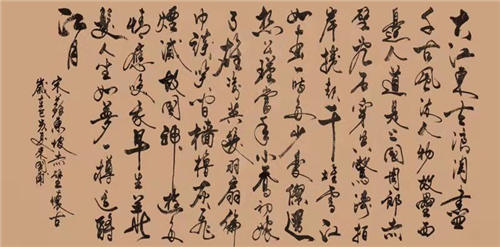 大江東去浪淘盡
千古風流人物故壘西
邊人道是三國周郎赤
壁亂石穿空驚濤拍
岸捲起千堆雪江
山如畫一時多少豪傑遥
想公瑾當年小喬初嫁
了雄姿英發羽扇綸
巾談笑間檣櫓灰飛
煙滅故國神遊多
情應笑我早生華
髮人生如夢一樽還酹
江月
宋蘇東坡赤壁懷古
歲在